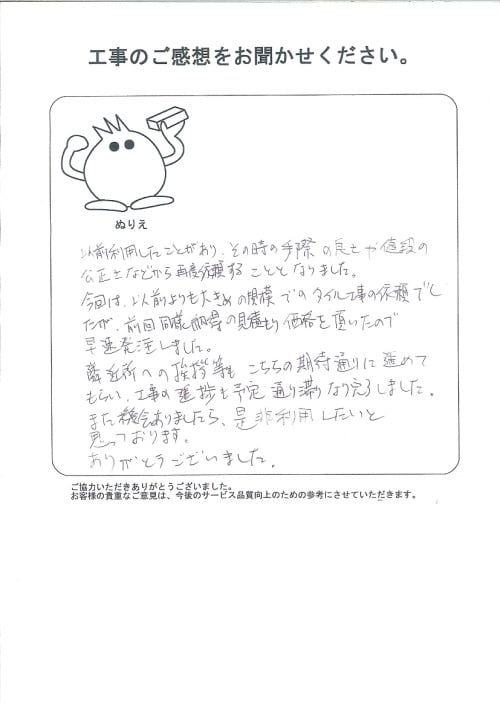 工事のご感想をお聞かせください。
ぬりえ
以前利用したことがあり、その時の手際の良さや値段の
公正さなどから再度依頼することとなりました。
今回は、以前よりも大きめの規模でのタイル工事の依頼でし
たが、前回同様納得の見積もり価格を頂いたので
早速発注しました。
隣近所への挨拶等もこちらの期待通りに進めて
もらい、工事の進捗も予定通り滞りなり完了しました。
また機会ありましたら、是非利用したいと
思っております。
ありがとうございました。
ご協力いただきありがとうございました。
お客様の貴重なご意見は、今後のサービス品質向上のための参考にさせていただきます。